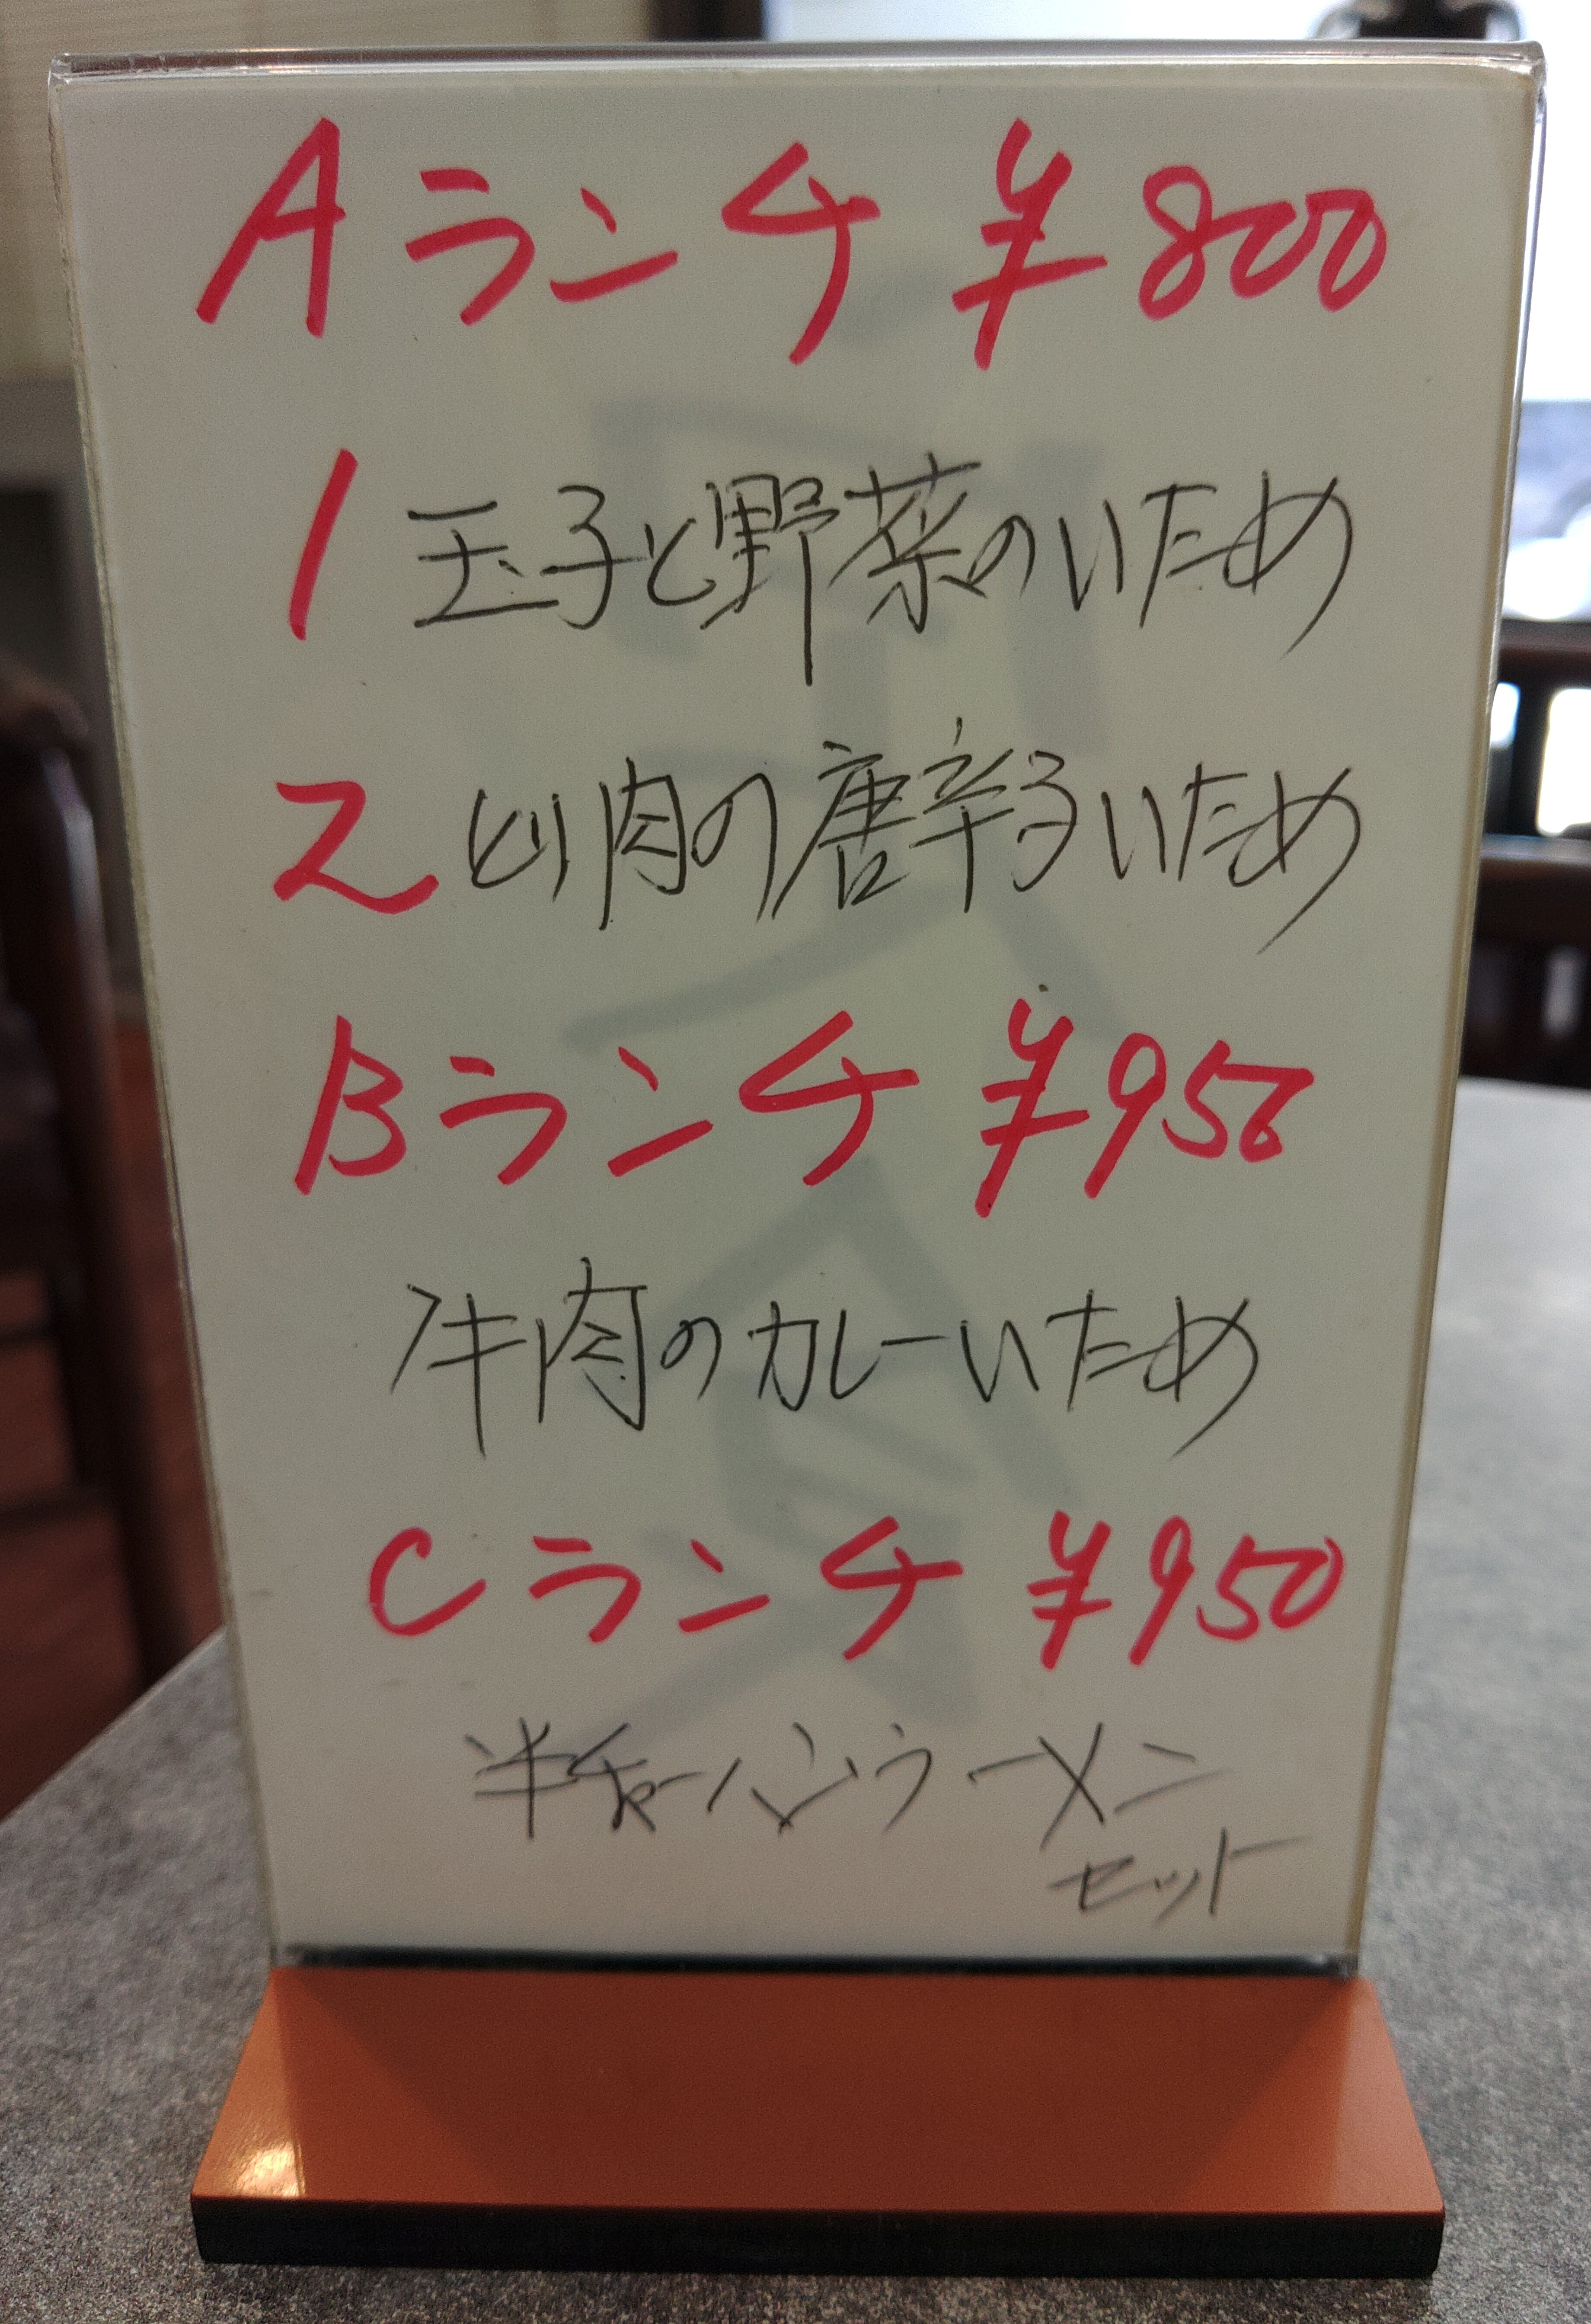 Aランチ ¥800
1 玉子と野菜のいため
2 とり肉の唐辛子いため
Bランチ ¥950
牛肉のカレーいため
Cランチ ¥950
半チャーハンラーメン
セット